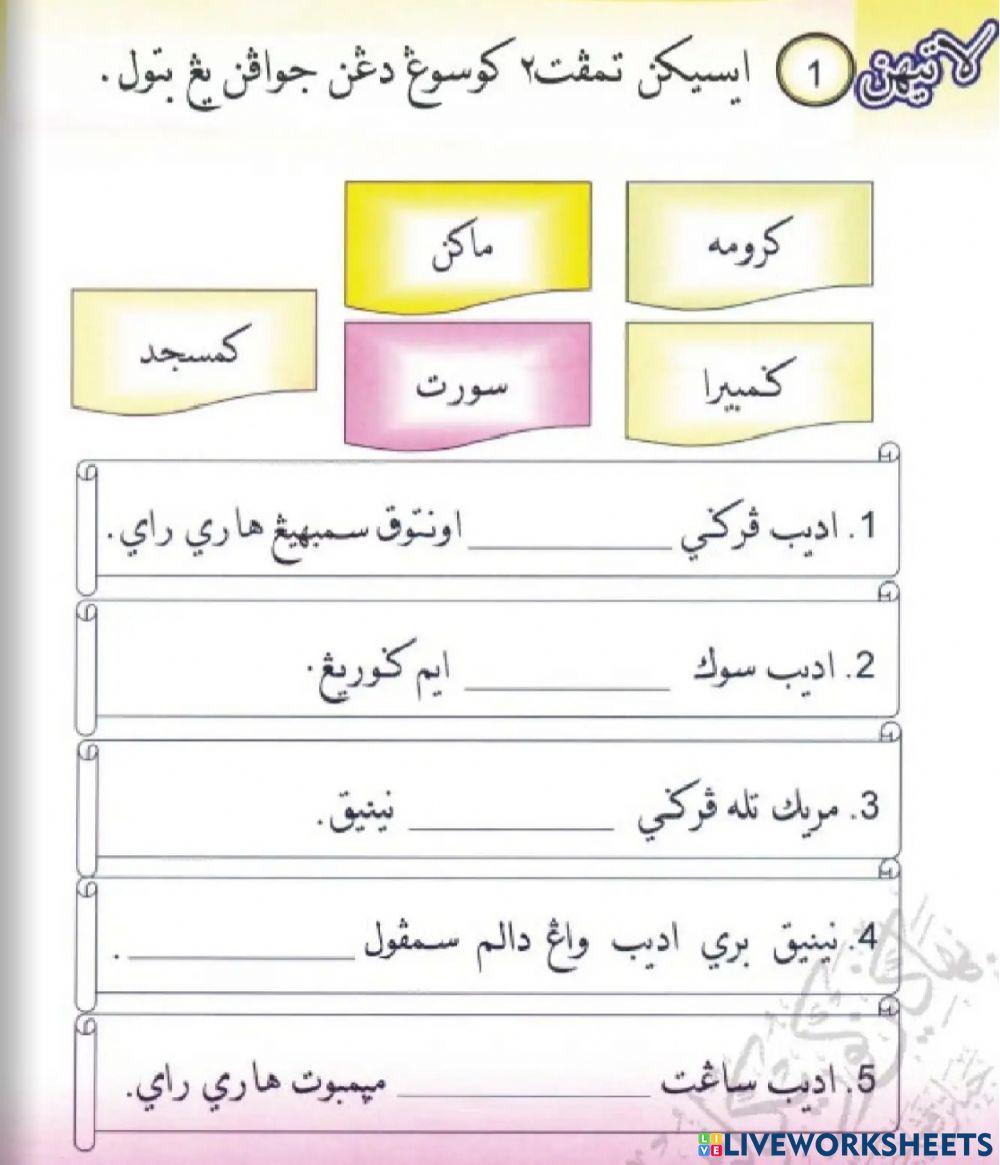 لاتيهن
1 ايسيكن تمڤت٢ كوسوڠ دڠن جواڤن يڠ بتول.
ماكن
كرومه
كمسجد
سورت
ݢمبيرا
1. اديب ڤرݢي __________ اونتوق سمبهيڠ هاري راي.
2. اديب سوك __________ ايم ݢوريڠ.
3. مريك تله ڤرݢي __________ نينيق.
4. نينيق بري اديب واڠ دالم سمڤول __________.
5. اديب ساڠت __________ مڽمبوت هاري راي.
LIVEWORKSHEETS